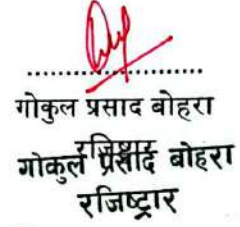 गोकुल प्रसाद बोहरा
रजिष्ट्रार
गोकुल प्रसाद बोहरा
रजिष्ट्रार